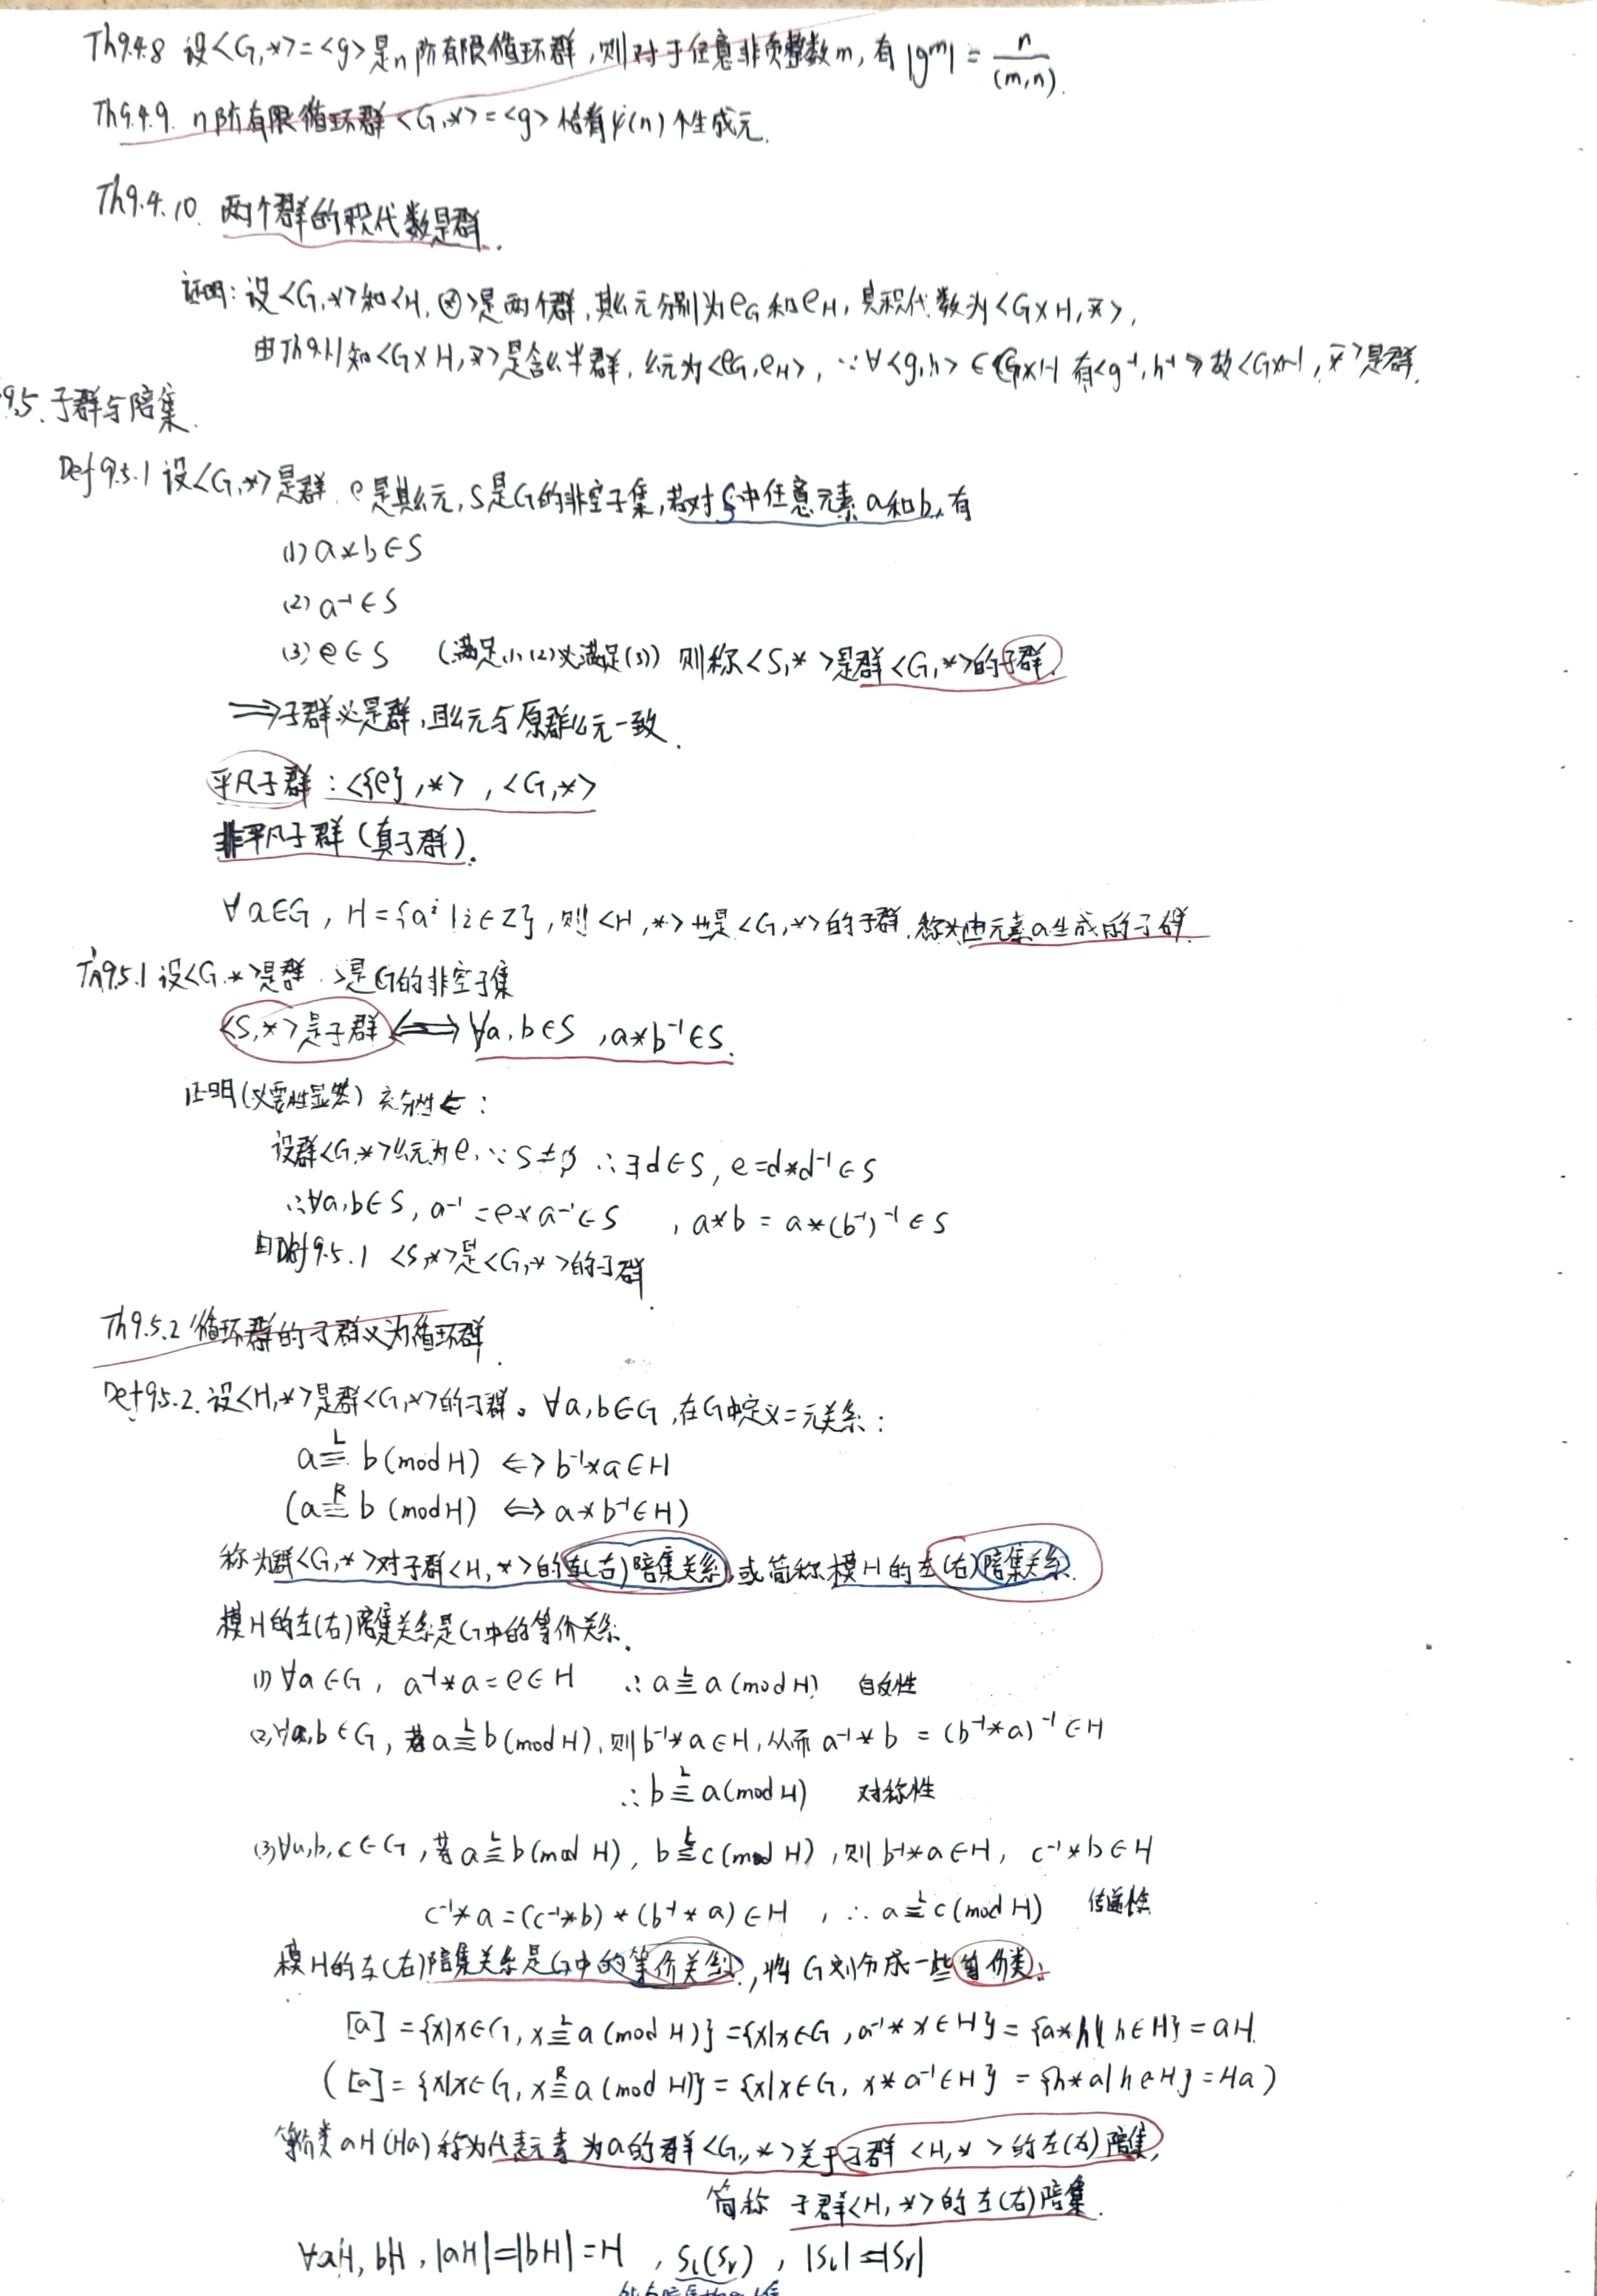 Th9.4.8 设<G,*>=<g>是n阶有限循环群,则对于任意非负整数m,有|g^m|=n/(m,n).
Th9.4.9. n阶有限循环群<G,*>=<g>恰有φ(n)个生成元.
Th9.4.10. 两个群的积代数是群.
证明:设<G,*>和<H,⊛>是两个群,其幺元分别为e_G和e_H,其积代数为<G×H,⊼>,
由Th9.1.1知<G×H,⊼>是含幺半群,幺元为<e_G,e_H>,∵∀<g,h>∈G×H有<g⁻¹,h⁻¹>故<G×H,⊼>是群.
9.5.子群与陪集.
Def9.5.1 设<G,*>是群.e是其幺元,S是G的非空子集,若对S中任意元素a和b,有
(1)a*b∈S
(2)a⁻¹∈S
(3)e∈S (满足(1)(2)必满足(3)) 则称<S,*>是群<G,*>的子群.
⇒子群必是群,且幺元与原群幺元一致.
平凡子群:<{e},*>,<G,*>
非平凡子群(真子群).
∀a∈G,H={aⁱ|i∈Z},则<H,*>也是<G,*>的子群.称为由元素a生成的子群.
Th9.5.1 设<G,*>是群.S是G的非空子集
<S,*>是子群⟺∀a,b∈S,a*b⁻¹∈S.
证明(必要性显然) 充分性⇐:
设群<G,*>幺元为e.∵S≠∅ ∴∃d∈S,e=d*d⁻¹∈S
∴∀a,b∈S,a⁻¹=e*a⁻¹∈S ,a*b=a*(b⁻¹)⁻¹∈S
由Def9.5.1 <S,*>是<G,*>的子群.
Th9.5.2 循环群的子群必为循环群.
Def9.5.2.设<H,*>是群<G,*>的子群。∀a,b∈G,在G中定义二元关系:
a≡ᴸb(mod H) ⟺ b⁻¹*a∈H
(a≡ᴿb(mod H) ⟺ a*b⁻¹∈H)
称为群<G,*>对子群<H,*>的左(右)陪集关系,或简称模H的左(右)陪集关系.
模H的左(右)陪集关系是G中的等价关系.
(1)∀a∈G, a⁻¹*a=e∈H ∴a≡ᴸa(mod H) 自反性
(2)∀a,b∈G,若a≡ᴸb(mod H),则b⁻¹*a∈H,从而a⁻¹*b=(b⁻¹*a)⁻¹∈H
∴b≡ᴸa(mod H) 对称性
(3)∀a,b,c∈G,若a≡ᴸb(mod H),b≡ᴸc(mod H),则b⁻¹*a∈H, c⁻¹*b∈H
c⁻¹*a=(c⁻¹*b)*(b⁻¹*a)∈H ,∴a≡ᴸc(mod H) 传递性
模H的左(右)陪集关系是G中的等价关系,将G划分成一些等价类:
[a]={x|x∈G,x≡ᴸa(mod H)}={x|x∈G,a⁻¹*x∈H}={a*h|h∈H}=aH.
([a]={x|x∈G,x≡ᴿa(mod H)}={x|x∈G,x*a⁻¹∈H}={h*a|h∈H}=Ha)
等价类aH(Ha)称为代表元素为a的群<G,*>关于子群<H,*>的左(右)陪集,
简称 子群<H,*>的左(右)陪集.
∀aH,bH,|aH|=|bH|=H ,S_l(S_r),|S_l|=|S_r|